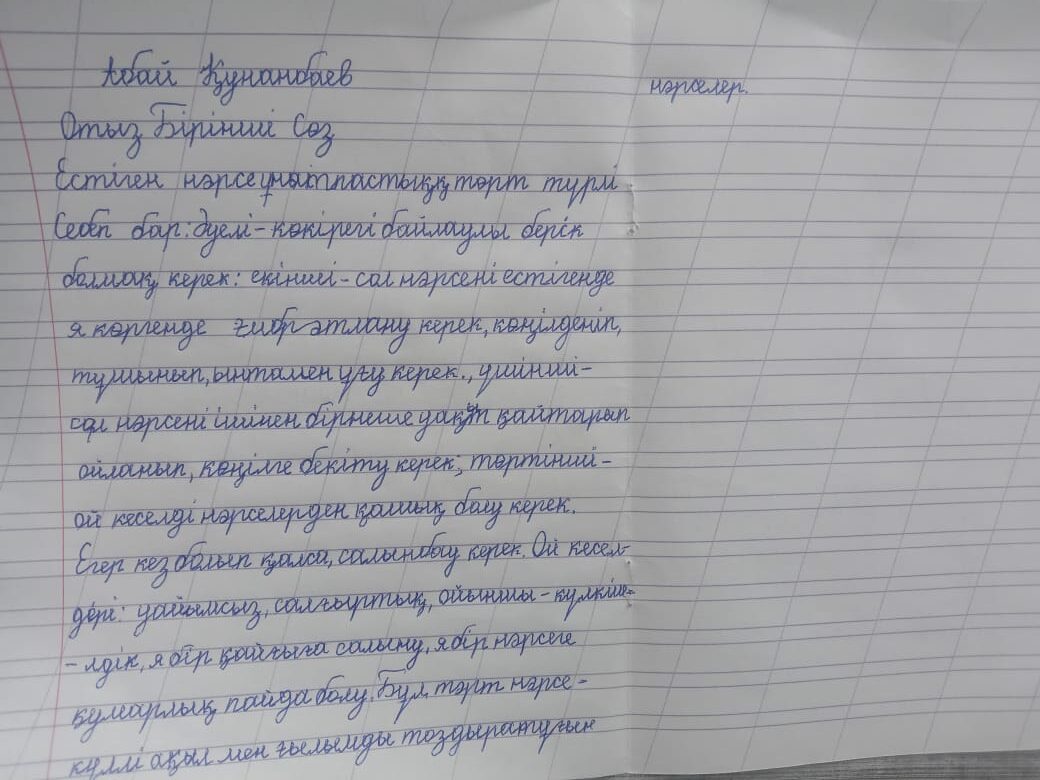 Абай Құнанбаев
Отыз Бірінші Сөз
Естіген нәрсе ұмытпастыққ төрт түрлі
Себеп бар: әуелі - көкірегі байлаулы берік
болмақ керек: екінші - сол нәрсені естігенде
я көргенде ғибрәтлану керек, көңілденіп,
тұшынып, ынтамен ұғу керек., үшінші -
сол нәрсені ішінен бірнеше уақыт қайтарып
ойланып, көңілге бекіту керек; төртінші -
ой кеселді нәрселерден қашық болу керек.
Егер кез болып қалса, салынбау керек. Ой кесел-
дері: уайымсыз, салғыртық, ойыншы - күлкіш-
- лдік, я бір қайғыға салыну, я бір нәрсеге
құмарлық пайда болу. Бұл төрт нәрсе -
күллі ақыл мен ғылымды тоздыратұғын
нәрселер.